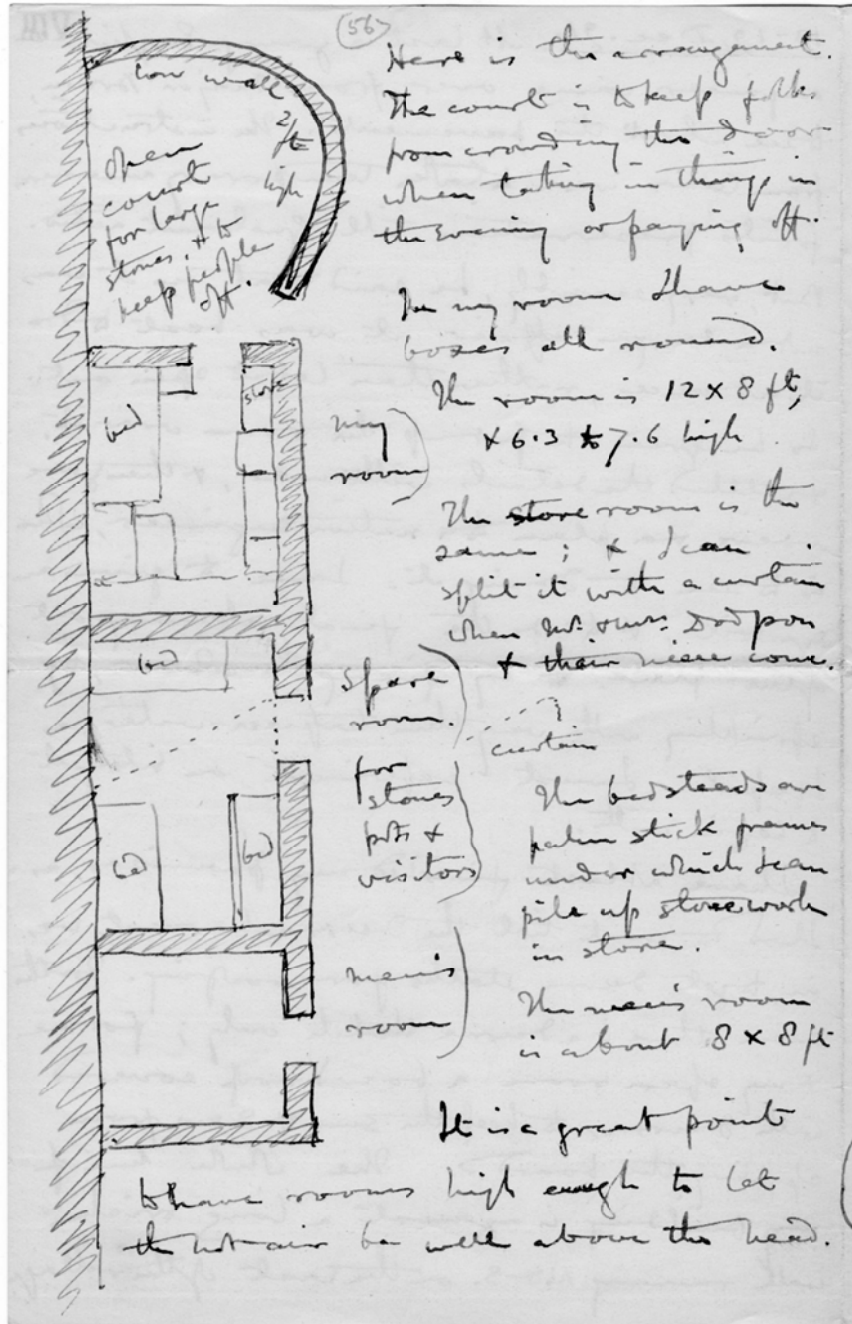 (56)
Here is the arrangement.
The court is to keep folks
from crowding the door
when taking in things in
the evening or paying off.
In my room I have
boxes all round.
The room is 12 x 8 ft,
x 6.3 to 7.6 high
The store room is the
same; & I can
split it with a curtain
when Mr. & Mrs. Dodgson
& their niece come.
The bedsteads are
palm stick frames
under which I can
pile up stonework
in store.
The men's room
is about 8 x 8 ft
It is a great point
to have rooms high enough to let
the hot air be well above the head.
low wall
2/ft
high
open
court
for large
stones, & to
keep people
off.
bed
stove
my
room
bed
spare
room.
curtain
for
stones
pots &
visitors
bed
bed
men's
room